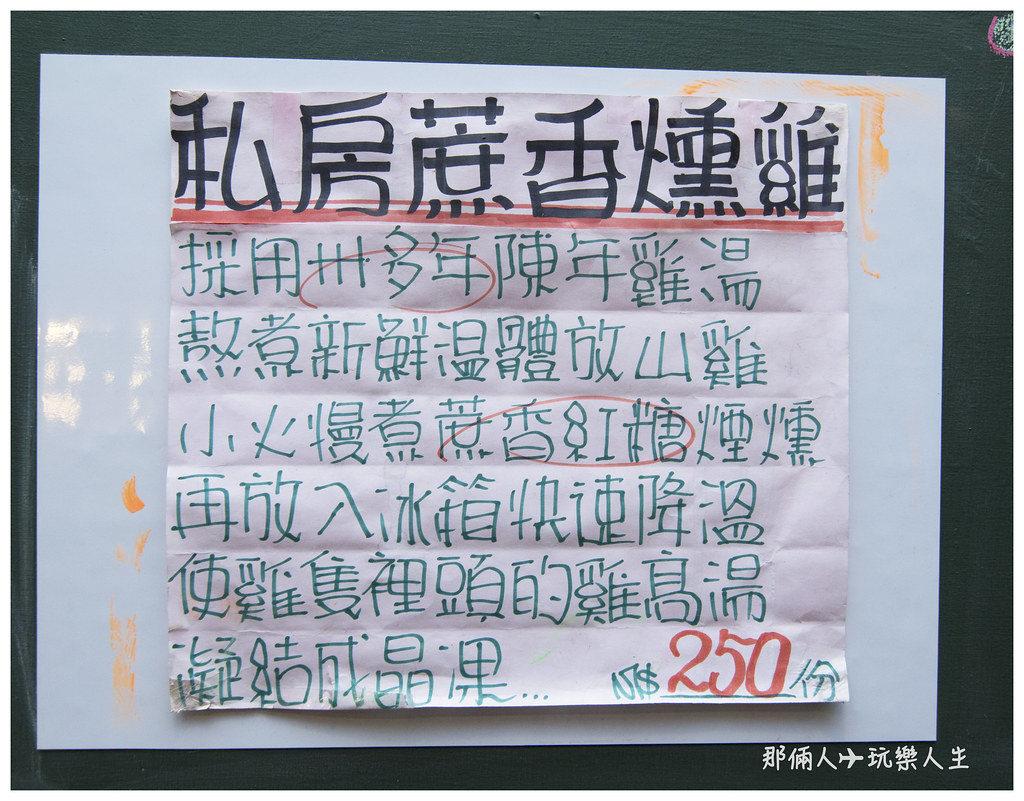 私房蔗香燻雞
採用卅多年陳年雞湯
熬煮新鮮温體放山雞
小火慢煮蔗香紅糖煙燻
再放入冰箱快速降溫
使雞隻裡頭的雞高湯
凝結成晶凍...
NT$ 250/份
那倆人✈玩樂人生